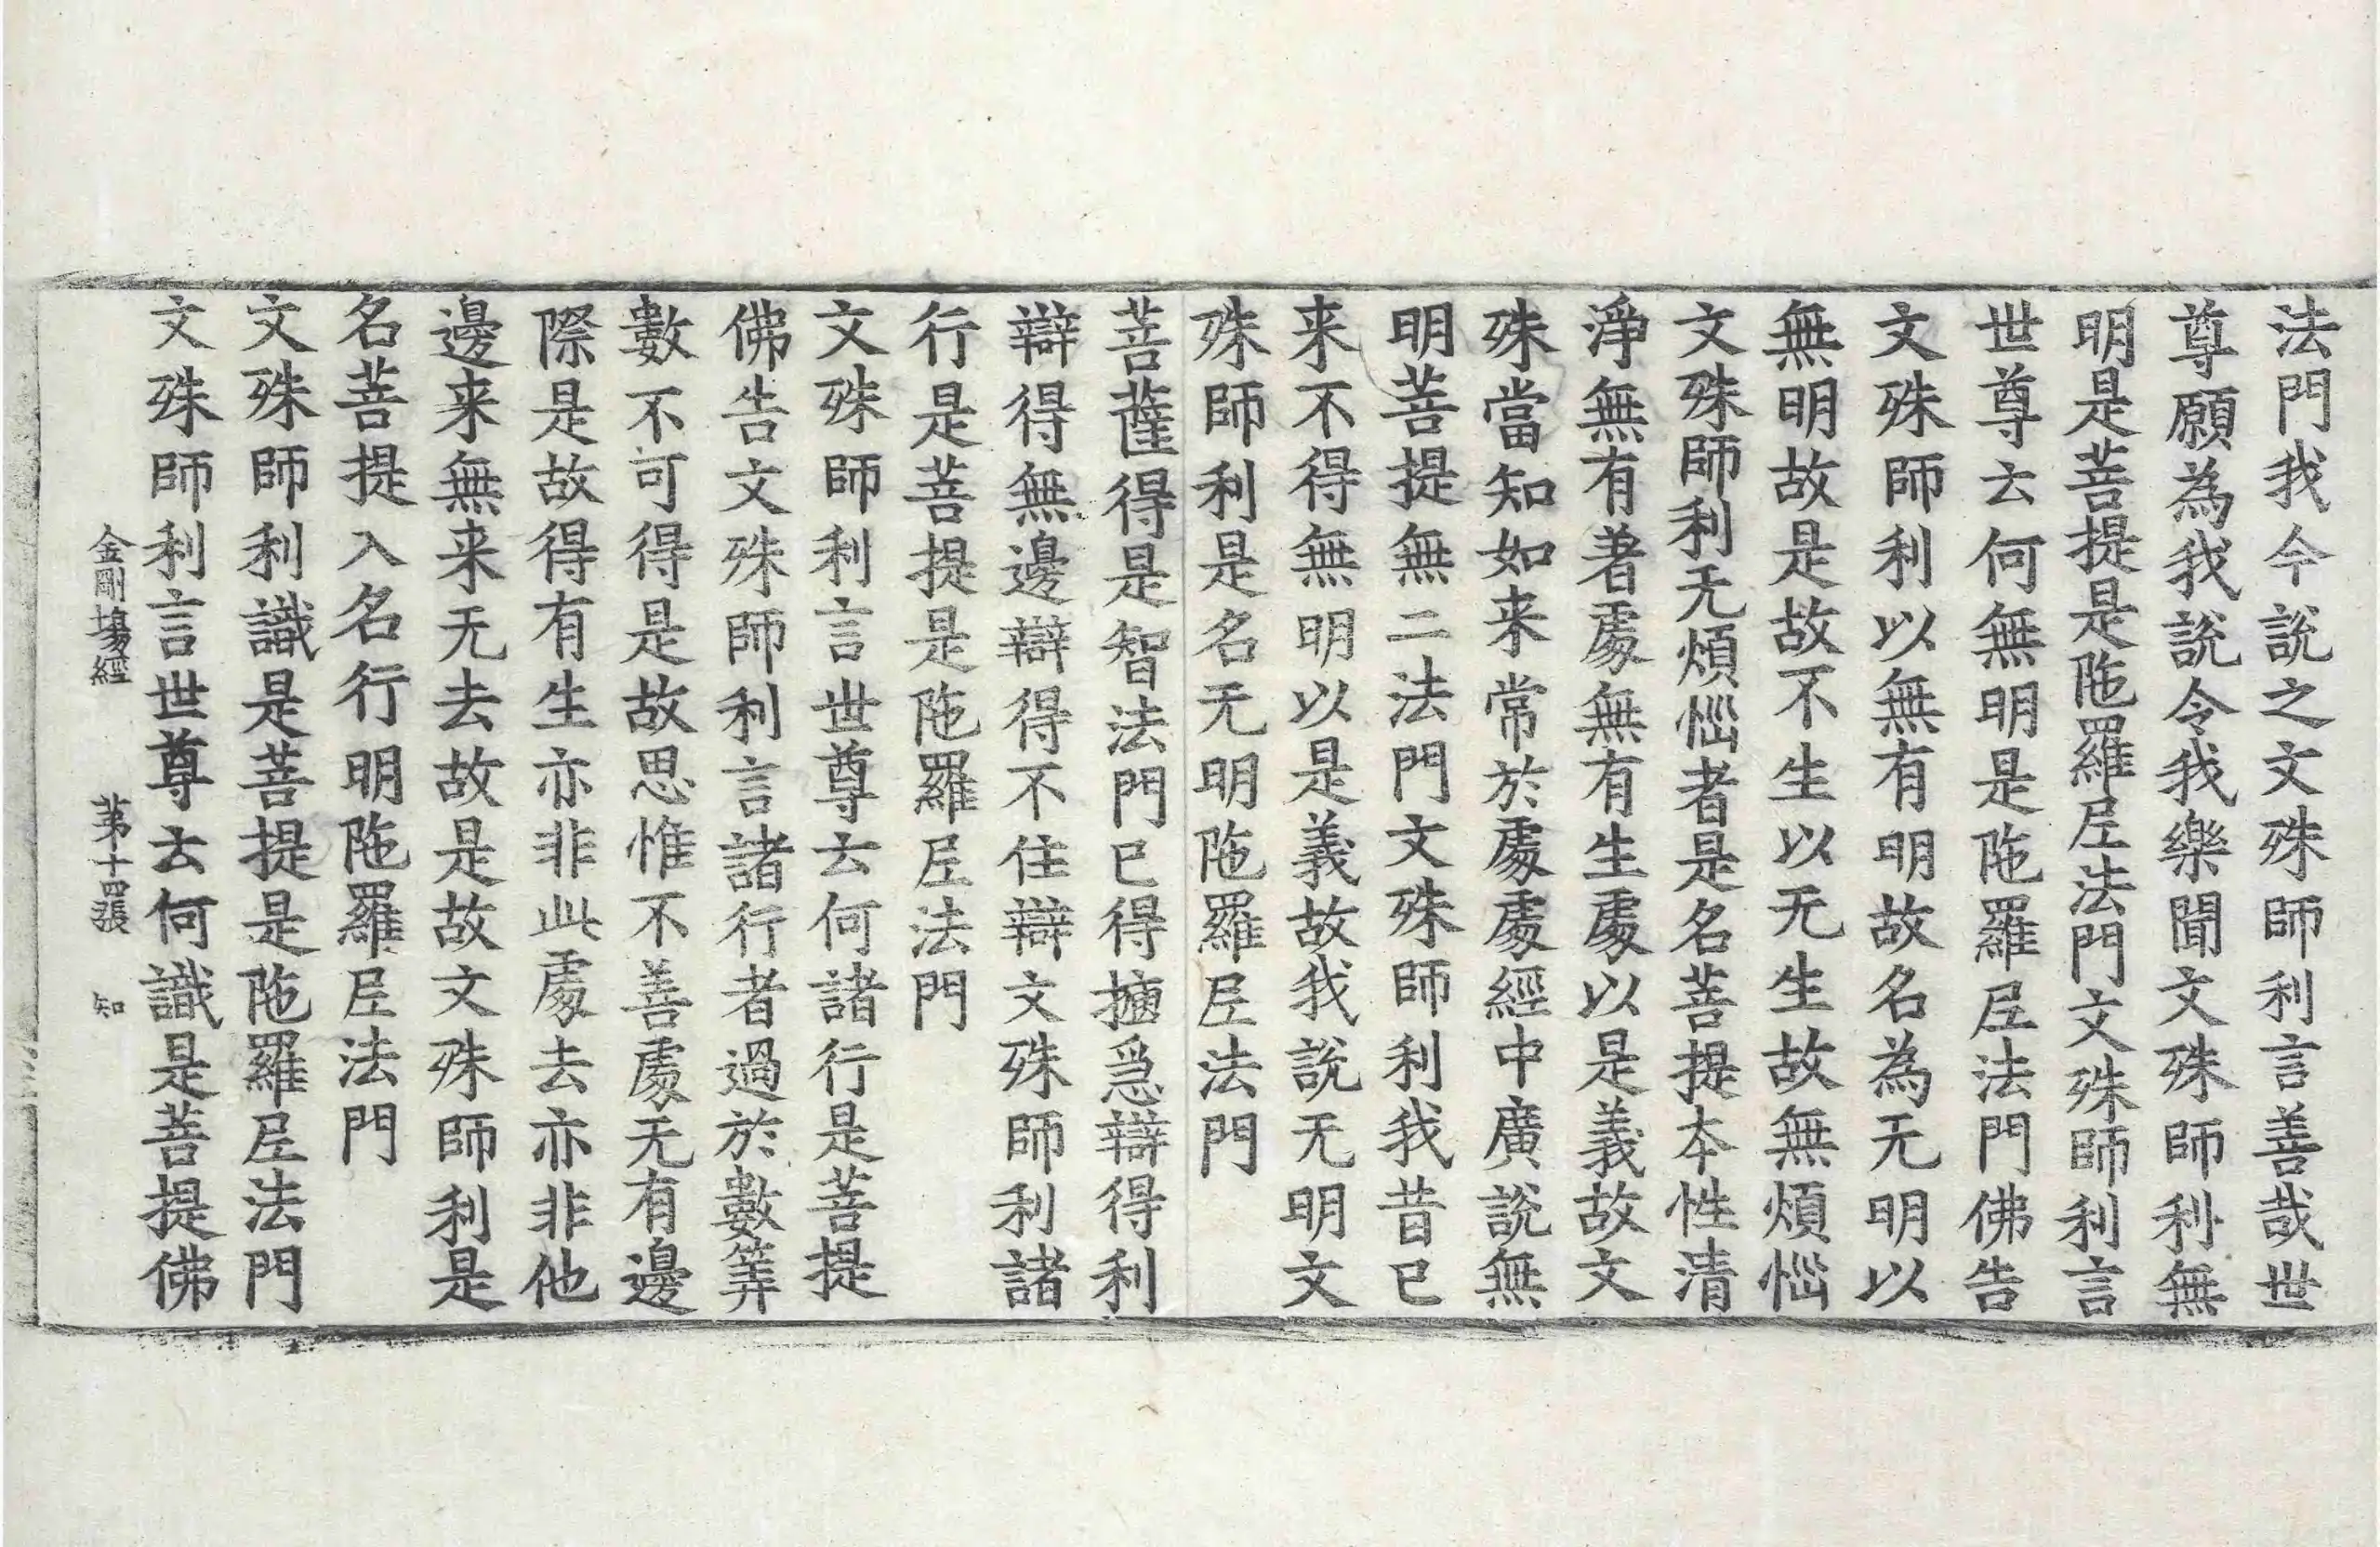 法門我今說之文殊師利言善哉世
尊願為我說令我樂聞文殊師利無
明是菩提是陁羅𡰱法門文殊師利言
世尊云何無明是陁羅𡰱法門佛告
文殊師利以無有明故名為无明以
無明故是故不生以无生故無煩惱
文殊師利无煩惱者是名菩提本性清
淨無有著處無有生處以是義故文
殊當知如来常於處處經中廣說無
明菩提無二法門文殊師利我昔已
来不得無明以是義故我說无明文
殊師利是名无明陁羅𡰱法門
菩薩得是智法門已得捷急辯得利
辯得無邊辯得不住辯文殊師利諸
行是菩提是陁羅𡰱法門
文殊師利言世尊云何諸行是菩提
佛告文殊師利言諸行者過於數筭
數不可得是故思惟不善處无有邊
際是故得有生亦非此處去亦非他
邊来無来无去故是故文殊師利是
名菩提入名行明陁羅𡰱法門
文殊師利識是菩提是陁羅𡰱法門
文殊師利言世尊云何識是菩提佛
金剛場經 第十四張 知